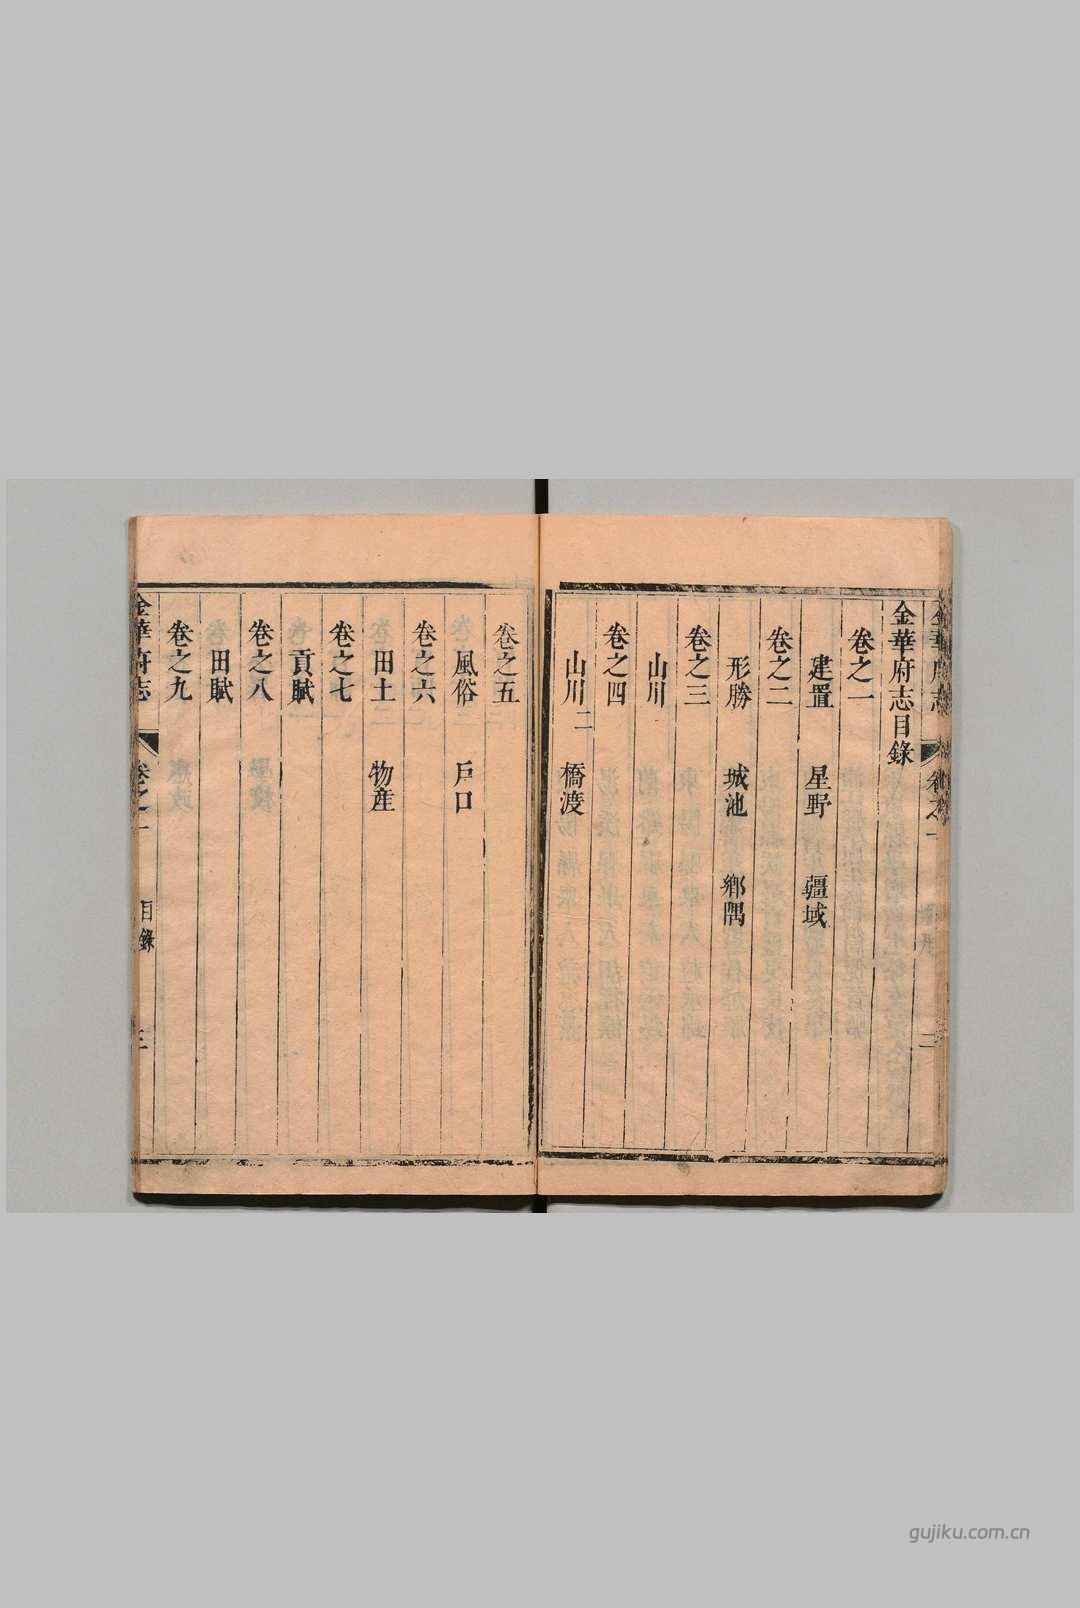 金華府志目錄
卷之一
建置 星野 疆域
卷之二
形勝 城池 鄉隅
卷之三
山川
卷之四
山川二 橋渡
卷之五
風俗 戶口
卷之六
田土 物産
卷之七
貢賦
卷之八
田賦
卷之九
金華府志 卷之一 目錄 三
gujiku.com.cn